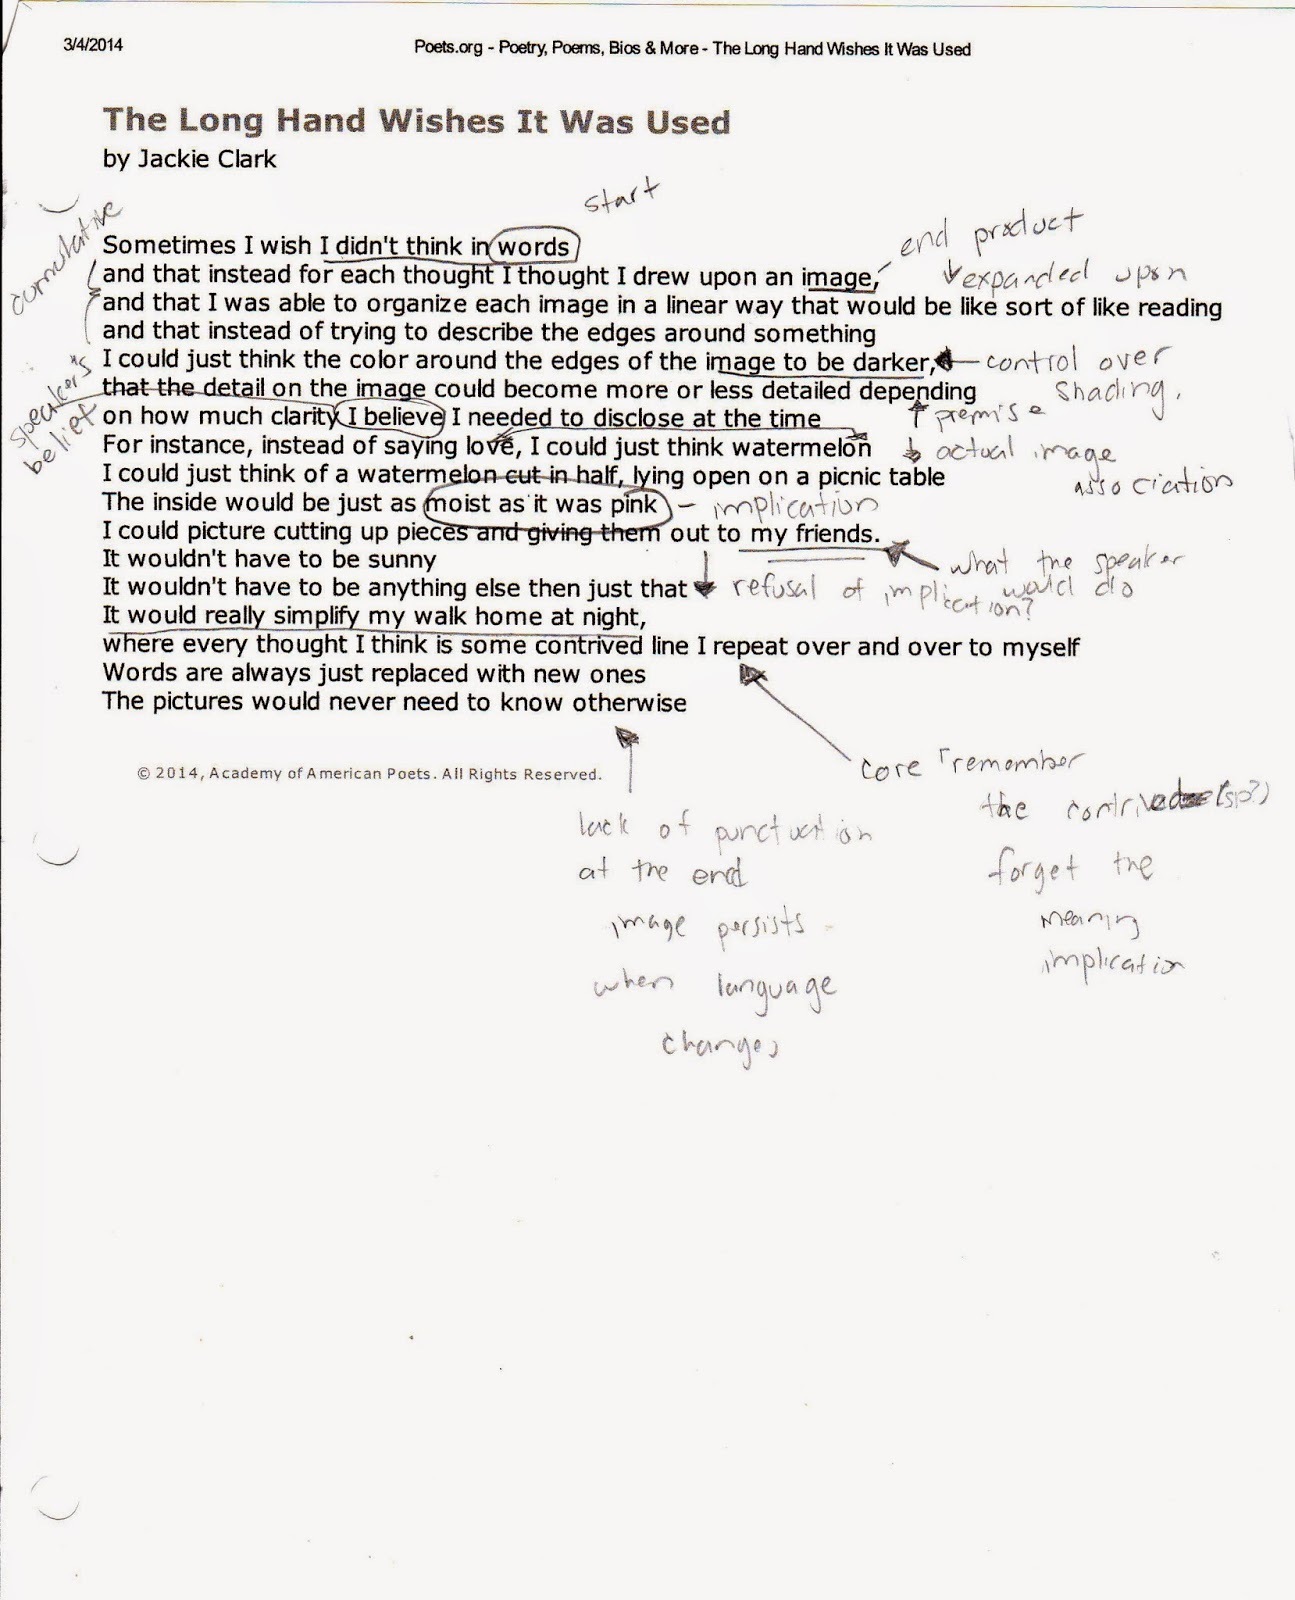 3/4/2014 Poets.org - Poetry, Poems, Bios & More - The Long Hand Wishes It Was Used
The Long Hand Wishes It Was Used
by Jackie Clark
start
cumulative
Sometimes I wish I didn't think in words
end product
and that instead for each thought I thought I drew upon an image,
expanded upon
and that I was able to organize each image in a linear way that would be like sort of like reading
and that instead of trying to describe the edges around something
I could just think the color around the edges of the image to be darker,
control over
shading.
speaker's
belief
that the detail on the image could become more or less detailed depending
on how much clarity I believe I needed to disclose at the time
premise
For instance, instead of saying love, I could just think watermelon
actual image
association
I could just think of a watermelon cut in half, lying open on a picnic table
The inside would be just as moist as it was pink
- implication
I could picture cutting up pieces and giving them out to my friends.
what the speaker
would do
It wouldn't have to be sunny
It wouldn't have to be anything else then just that
refusal of implication?
It would really simplify my walk home at night,
where every thought I think is some contrived line I repeat over and over to myself
Words are always just replaced with new ones
The pictures would never need to know otherwise
core remember
the contrived (sp?)
forget the
meaning
implication
© 2014, Academy of American Poets. All Rights Reserved.
lack of punctuation
at the end
image persists
when language
changes